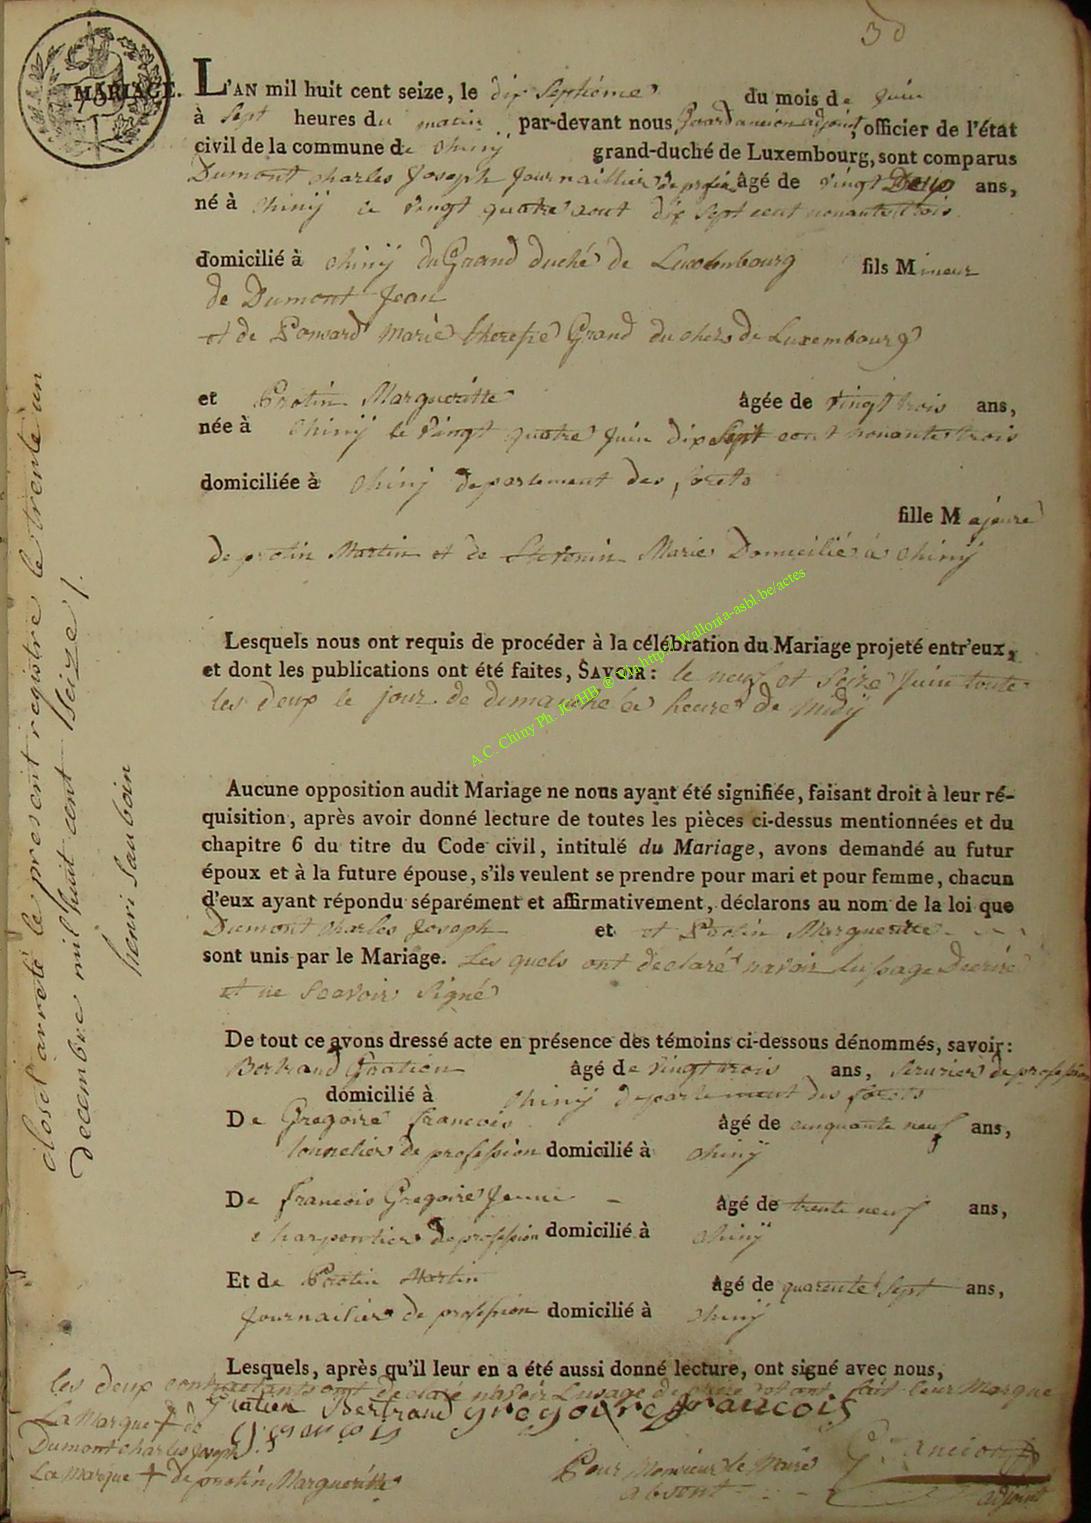 30
MARIAGE.
L'AN mil huit cent seize, le dix septiéme du mois de juin
à sept heures du matin par-devant nous ancion adjoint officier de l'état
civil de la commune de Chinÿ grand-duché de Luxembourg, sont comparus
Dumont Charles Joseph Journaillier de profession âgé de vingt Deux ans,
né à Chinij le vingt quatre aout dix sept cent nonante trois
domicilié à Chinÿ du Grand duché de Luxembourg fils Mineur
de Dumont Jean
et de Ponsard Marie therese Grand du chez de Luxembourg
et Protin Margueritte âgée de vingt trois ans,
née à Chinij le vingt quatre juin dix sept cent nonante trois
domiciliée à Chinij departement des forets
fille Majeure
de protin Martin et de Marie Domicilié à Chinij
Lesquels nous ont requis de procéder à la célébration du Mariage projeté entr'eux,
et dont les publications ont été faites, SAVOIR : le neuf et seize juin toute
les deux le jour de dimanche a heure de midÿ
Aucune opposition audit Mariage ne nous ayant été signifiée, faisant droit à leur ré-
quisition, après avoir donné lecture de toutes les pièces ci-dessus mentionnées et du
chapitre 6 du titre du Code civil, intitulé du Mariage, avons demandé au futur
époux et à la future épouse, s'ils veulent se prendre pour mari et pour femme, chacun
d'eux ayant répondu séparément et affirmativement, déclarons au nom de la loi que
Dumont Charles Joseph et et Protin Margueritte
sont unis par le Mariage. Les quels ont declaré navoir lussage Decrire
et ne scavoir signé
De tout ce avons dressé acte en présence des témoins ci-dessous dénommés, savoir :
Bertrand Gratien âgé de vingt trois ans, serurier de profession
domicilié à Chinij departement des forets
De Gregoire francois âgé de cinquante neuf ans,
tonnelier de profession domicilié à Chinÿ
De francois Gregoire Jeune âgé de trente neuf ans,
charpentier de profession domicilié à Chinÿ
Et de Protin Martin âgé de quarente sept ans,
Journailier de profession domicilié à Chinij
Lesquels, après qu'il leur en a été aussi donné lecture, ont signé avec nous,
les deux contractants ont declaré navoir Lusage et ont fait leur Marque
gratien Bertrand gregoire francois
La Marque + de
Dumont Charles Joseph
La Marque + de protin Margueritte
Pour Monsieur le Maire
absent
G. ancion
adjoint
closet arreté le present registre le trente un
decembre mil huit cent seize /.
henri Saubain
A.C. Chiny Ph. JC/HB ® Wallonia-asbl.be/actes